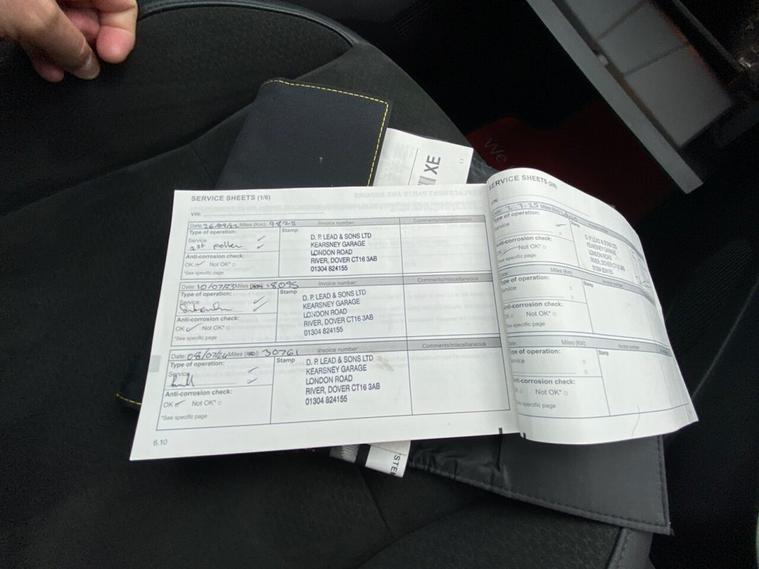 XE
We
SERVICE SHEETS (1/6)
VIN:
Date: Miles (Km): Invoice number: Comments/miscellaneous
Type of operation: Stamp
Service ✓
✓
Anti-corrosion check:
OK ✓ Not OK*
*See specific page
D. P. LEAD & SONS LTD
KEARSNEY GARAGE
LONDON ROAD
RIVER, DOVER CT16 3AB
01304 824155
Date: 10/07/23 Miles 18095 Invoice number: Comments/miscellaneous
Type of operation: Stamp
Service ✓
✓
Anti-corrosion check:
OK ✓ Not OK*
*See specific page
D. P. LEAD & SONS LTD
KEARSNEY GARAGE
LONDON ROAD
RIVER, DOVER CT16 3AB
01304 824155
Date: 08/07/24 Miles 30761 Invoice number: Comments/miscellaneous
Type of operation: Stamp
Service ✓
✓
Anti-corrosion check:
OK ✓ Not OK*
*See specific page
D. P. LEAD & SONS LTD
KEARSNEY GARAGE
LONDON ROAD
RIVER, DOVER CT16 3AB
01304 824155
6.10
SERVICE SHEETS
VIN:
Type of operation: Stamp
Service
Anti-corrosion check:
OK ✓ Not OK*
*See specific page
D. P. LEAD & SONS LTD
KEARSNEY GARAGE
LONDON ROAD
RIVER, DOVER CT16 3AB
01304 824155
Date: Miles (Km):
Type of operation: Stamp
Service
Anti-corrosion check:
OK Not OK*
*See specific page
Date: Miles (Km): Invoice number:
Type of operation: Stamp
Service
Anti-corrosion check:
OK Not OK*
*See specific page
STE